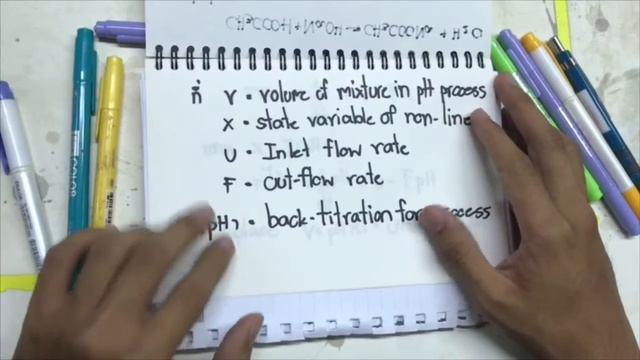 CH3COOH + NaOH → CH3COONa + H2O
ṅ V • volume of mixture in pH process
X • state variable of non-line
U • Inlet flow rate
F • out-flow rate
pH • back-titration for process